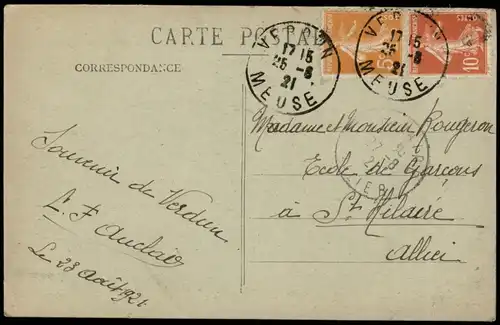 CARTE POSTALE
CORRESPONDANCE
VERDUN
17 15
25 -8
21
MEUSE
VERDUN
17 15
25 -8
21
MEUSE
5
10
Souvenir de Verdun
Le 23 Août 1921
Madame et Monsieur Rougeron
Ecole de Garçons
à St Hilaire
Allier